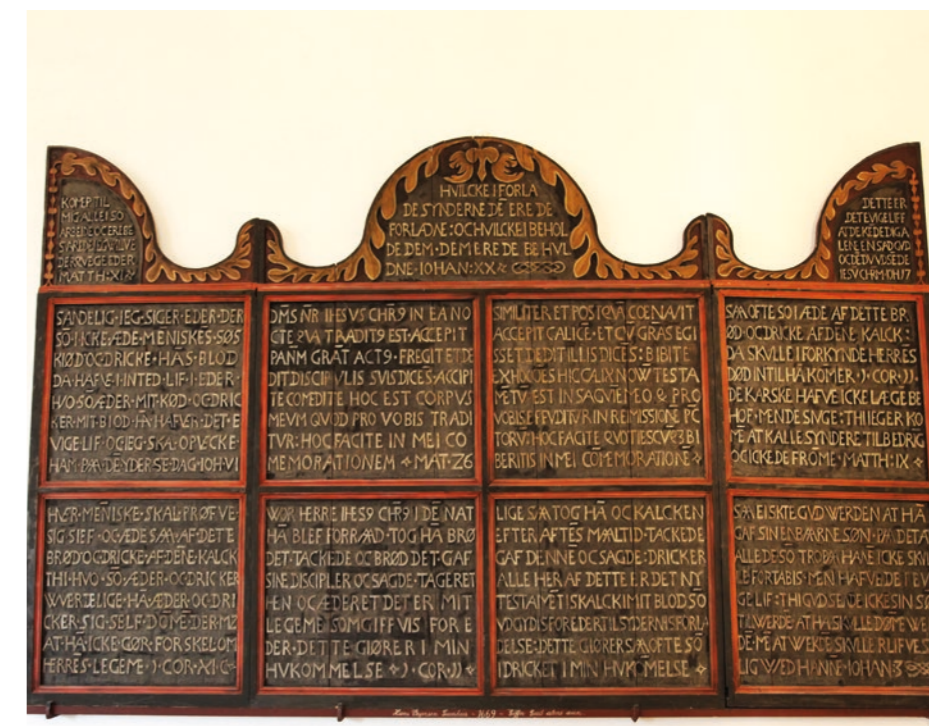 KOMER TIL
MIG ALLE I SO
MATTH: XI
HVILCKE I FORLA
DE SYNDERNE DE ERE DE
FORLADNE : OC HVILCKE I BEHOL
DE DEM · DEM ERE DE BEHVL
DNE · IOHAN : XX
DETTE ER
DET EVIGE LIFF
AT DE KĒDE DIG A
LENE EN SAD GVD
OC DĒ DV VDSĒDE
IESV CHRM · IOH 17
SANDELIG · IEG · SIGER · EDER · DER
SŌ I ICKE · ÆDE · MENISKES · SØS
KIØD · OC DRICKE · HĀS · BLOD
DA HAFVE · I · INTED · LIF · I · EDER ·
HVO SŌ ÆDER · MIT · KØD · OC DRIC
KER · MIT · BLOD · HĀ HAFVER · DET · E
VIGE · LIF · OC IEG · SKAL · OPVECKE ·
HAM · PAA · DĒ YDERSE · DAG · IOH · VI
DM̄S NR̄ IHESVS CHR9 IN EA NO
CTE QVA TRADIT9 EST · ACCEPIT
PANM GRAT ACT9 · FREGIT ET DE
DIT DISCIPVLIS SVIS DICĒS · ACCIPI
TE COMEDITE HOC EST CORPVS
MEVM QVOD PRO VOBIS TRADI
TVR : HOC FACITE IN MEI CO
MEMORATIONEM MAT · 26
SIMILITER ET POSTQVĀ COENAVIT
ACCEPIT CALICĒ · ET CV̄ GRAS EGI
SSET DEDIT ILLIS DICĒS : BIBITE
EX HOC OES HIC CALIX NOVV̄ TESTA
METV̄ EST IN SAGVIĒ MEO Q PRO
VOBIS EFFVDITVR IN REMISSIONĒ PC̄
TORV̄ : HOC FACITE QVOTIESCV̄Q3 BI
BERITIS IN MEI COM̄EMORATIONĒ
SAA OFTE SO I ÆDE AF DETTE BR
ØD · OC DRICKE AF DĒNE KALCK :
DA SKVLLE I FORKYNDE HERRES
DØD INTIL HĀ KOMER · ) · COR · )) ·
DE KARSKE HAFVE ICKE LÆGE BE
HOF · MEN DE SIVGE : THI IEG ER KO
MĒ AT KALLE SYNDERE TIL BEDRIG
OC ICKE DE FRŌME · MATTH : IX
HVER · MENISKE · SKAL · PRØFVE ·
SIG SIELF · OC ÆDE SAA · AF · DETTE
BRØD · OC DRICKE · AF · DĒNE · KALCK
THI · HVO · SŌ · ÆDER · OC DRICKER
WVERDELIGE · HĀ · ÆDER · OC · DRI
CKER · SIG · SELF · DŌMĒ · DER · MZ
AT · HĀ · ICKE · GØR · FORSKEL OM
HERRES · LEGEME · ) · COR · XI
VOR HERRE IHES9 CHR9 I DĒ NAT
HĀ BLEF FORRAAD · TOG HĀ BRØ
DET · TACKEDE OC BRØD DET · GAF
SINE DISCIPLER OC SAGDE · TAGER ET
HEN OC ÆDER ET DET ER MIT
LEGEME SOM GIFFVIS FOR E
DER · DETTE GIØRER I MIN
HVKOMMELSE · ) COR · ))
LIGE SAA TOG HĀ OC KALCKEN
EFTER AFTĒS MAALTID · TACKEDE
GAF DENNE OC SAGDE : DRICKER
ALLE HER AF DETTE ER DET NY
TESTAMĒT I SKALCK I MIT BLOD SŌ
VDGYDIS FOR EDER TIL SYDERNIS FORLA
DELSE · DETTE GIØRER SAA OFTE SŌ
I DRICKET I MIN HVKOMELSE
SAA ELSKTE GVD WERDEN AT HĀ
GAF SIN ENBAARNE SØN · PAA DET A
ALLE DE SŌ TRO PAA HĀ ICKE SKV
LE FORTABIS · MEN HAFVE DET EV
GE LIF : THI GVD
LIG WED HANNĒ · IOHAN 3
1669